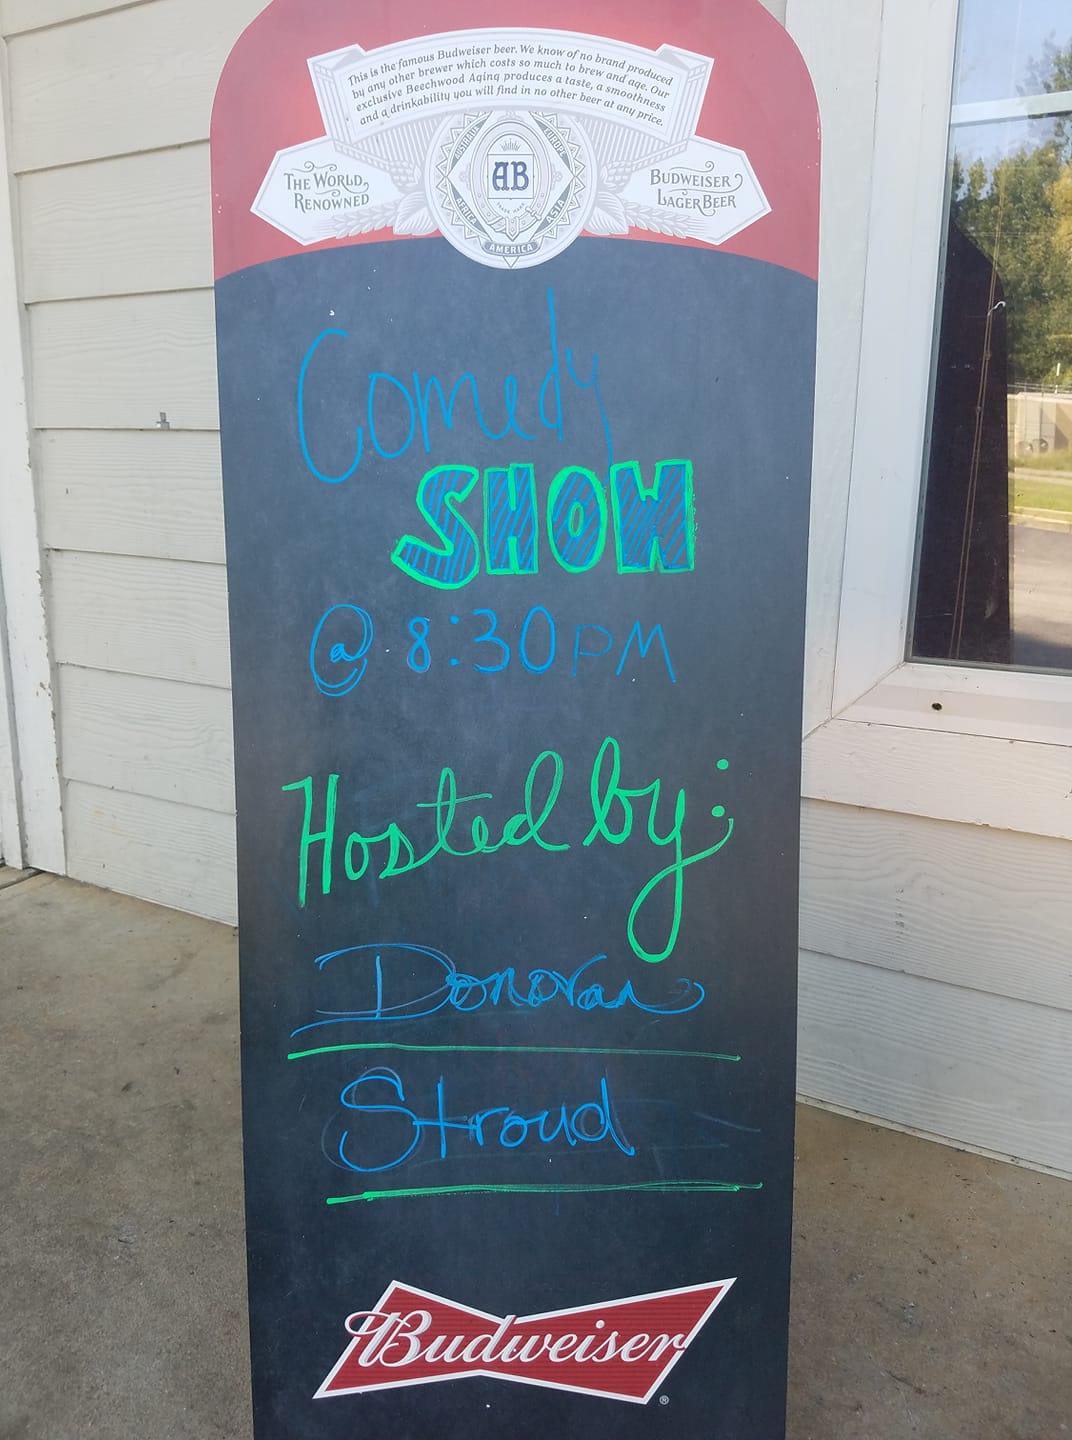 This is the famous Budweiser beer. We know of no brand produced
by any other brewer which costs so much to brew and age. Our
exclusive Beechwood Aging produces a taste, a smoothness
and a drinkability you will find in no other beer at any price.
THE WORLD
RENOWNED
AUSTRALIA
EUROPE
AB
TRADE MARK
AFRICA
ASIA
AMERICA
BUDWEISER
LAGER BEER
Comedy
SHOW
@ 8:30PM
Hosted by:
Donovan
Stroud
Budweiser
®